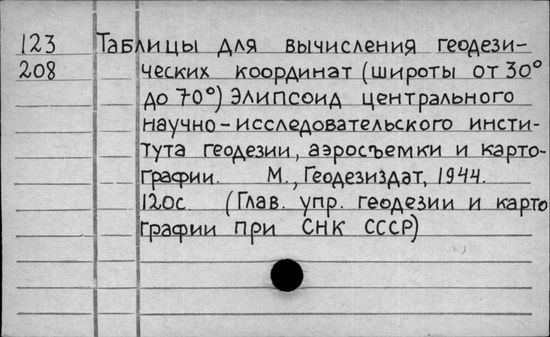 123 Таблицы для вычисления геодези-
208 ческих координат (широты от 30°
до 70°) Элипсоид центрального
научно-исследовательского инсти-
тута геодезии, аэросъемки и карто-
графии. М., Геодезиздат, 1944.
120с (Глав. упр. геодезии и карто
графии при СНК СССР)